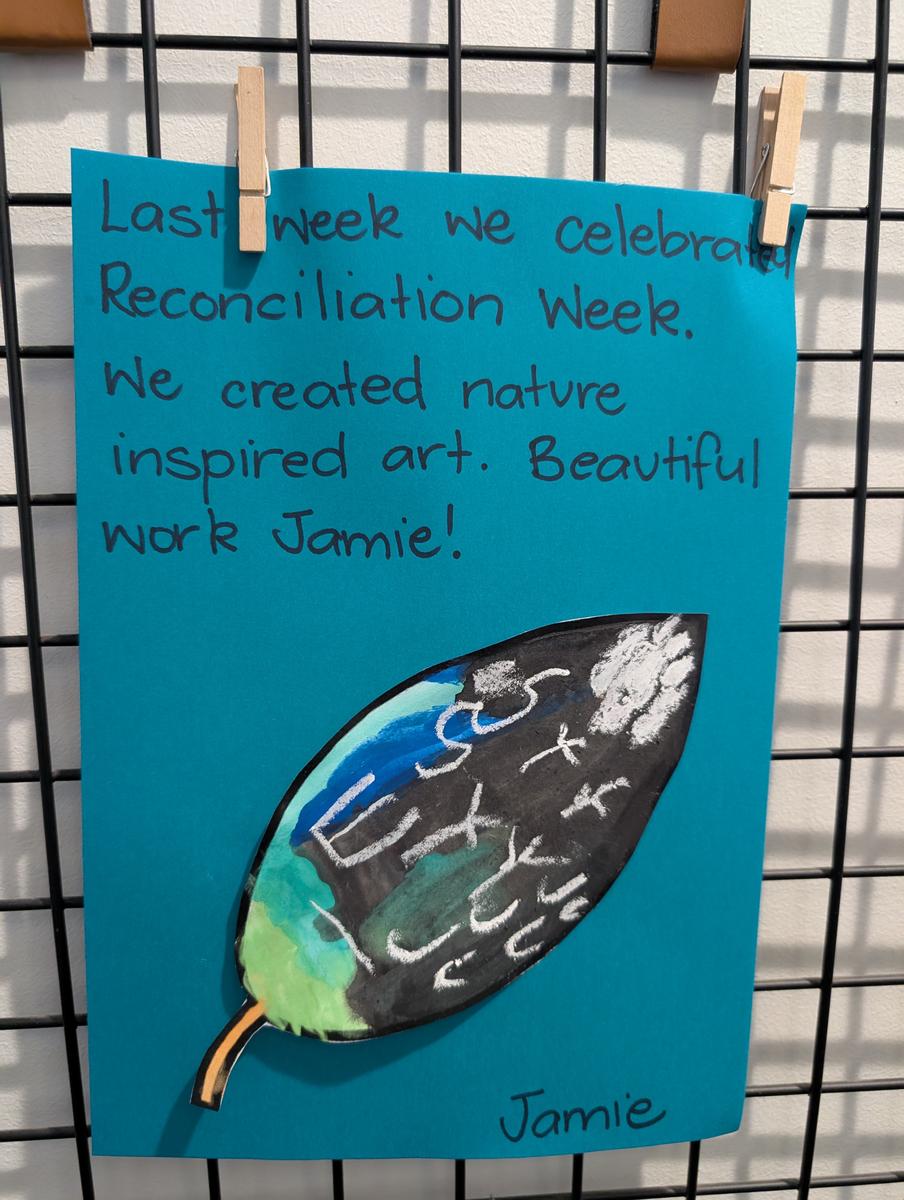 Last week we celebrated
Reconciliation Week.
We created nature
inspired art. Beautiful
work Jamie!
Jamie